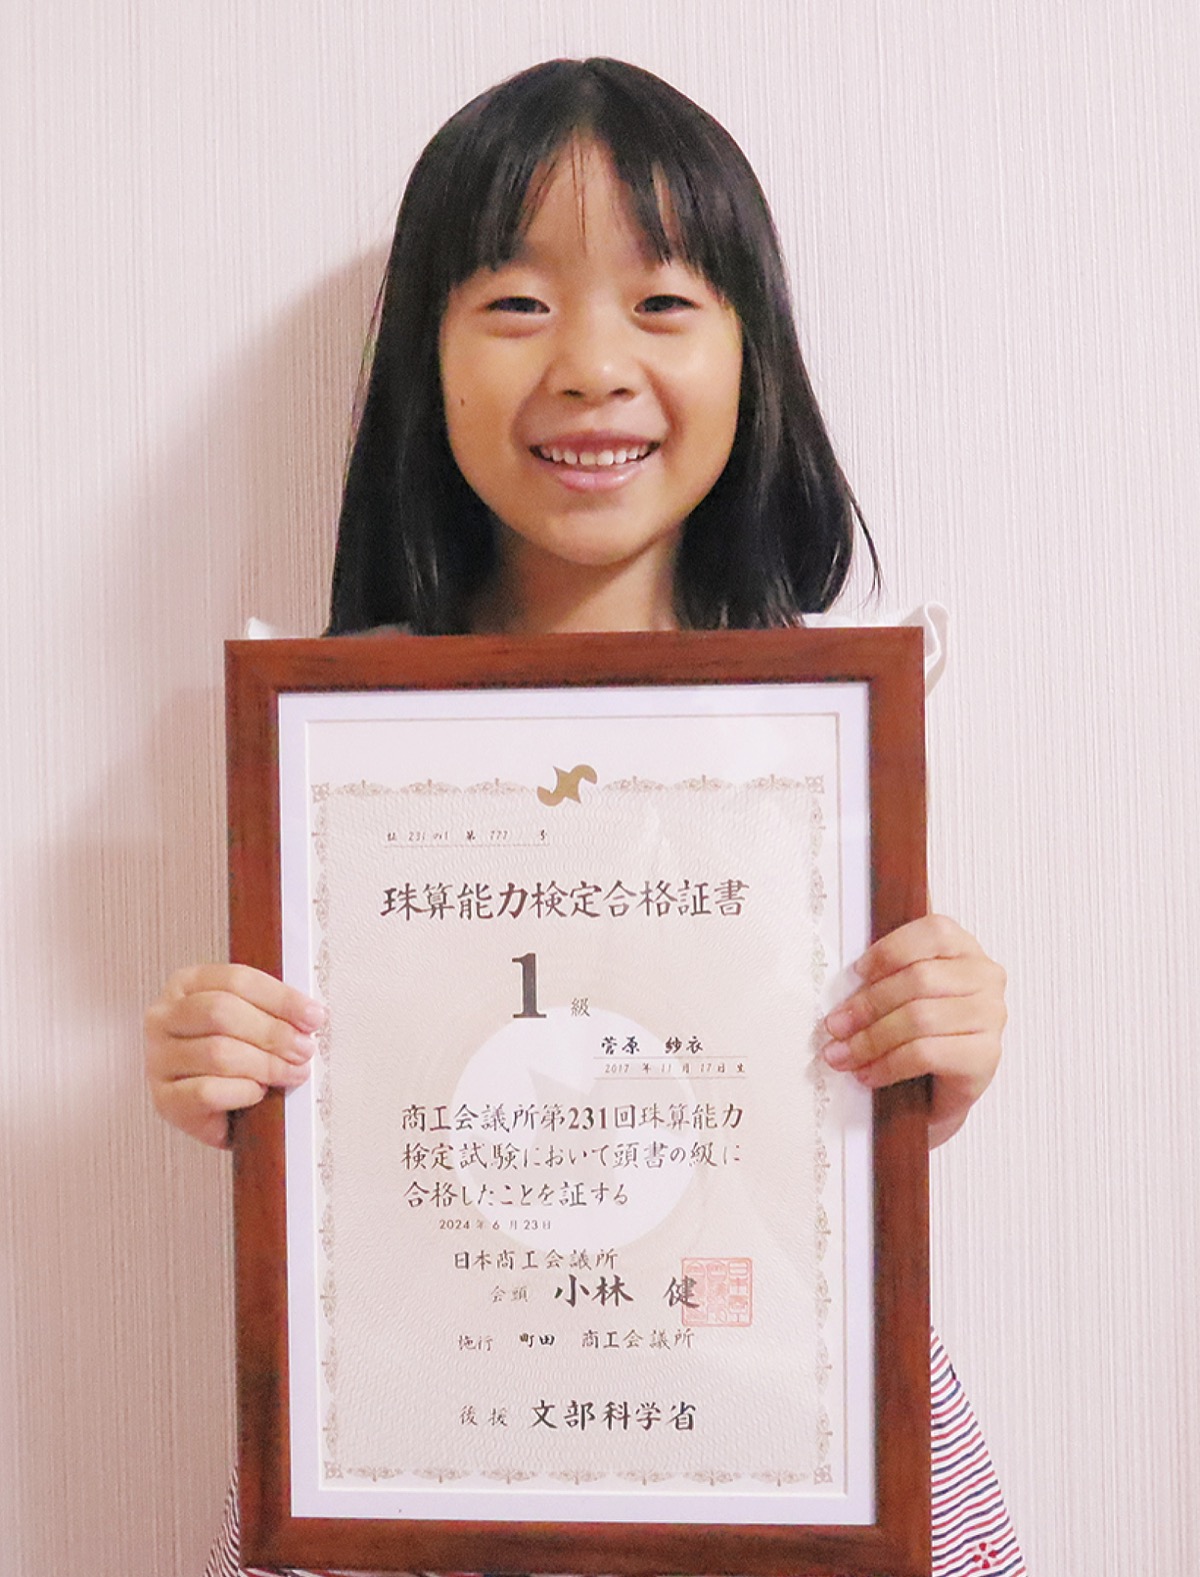 証 231 の1 第 777 号
珠算能力検定合格証書
1 級
菅原 紗衣
2017 年 11 月 17 日 生
商工会議所第231回珠算能力
検定試験において頭書の級に
合格したことを証する
2024 年 6 月 23 日
日本商工会議所
会頭 小林 健
施行 町田 商工会議所
後援 文部科学省